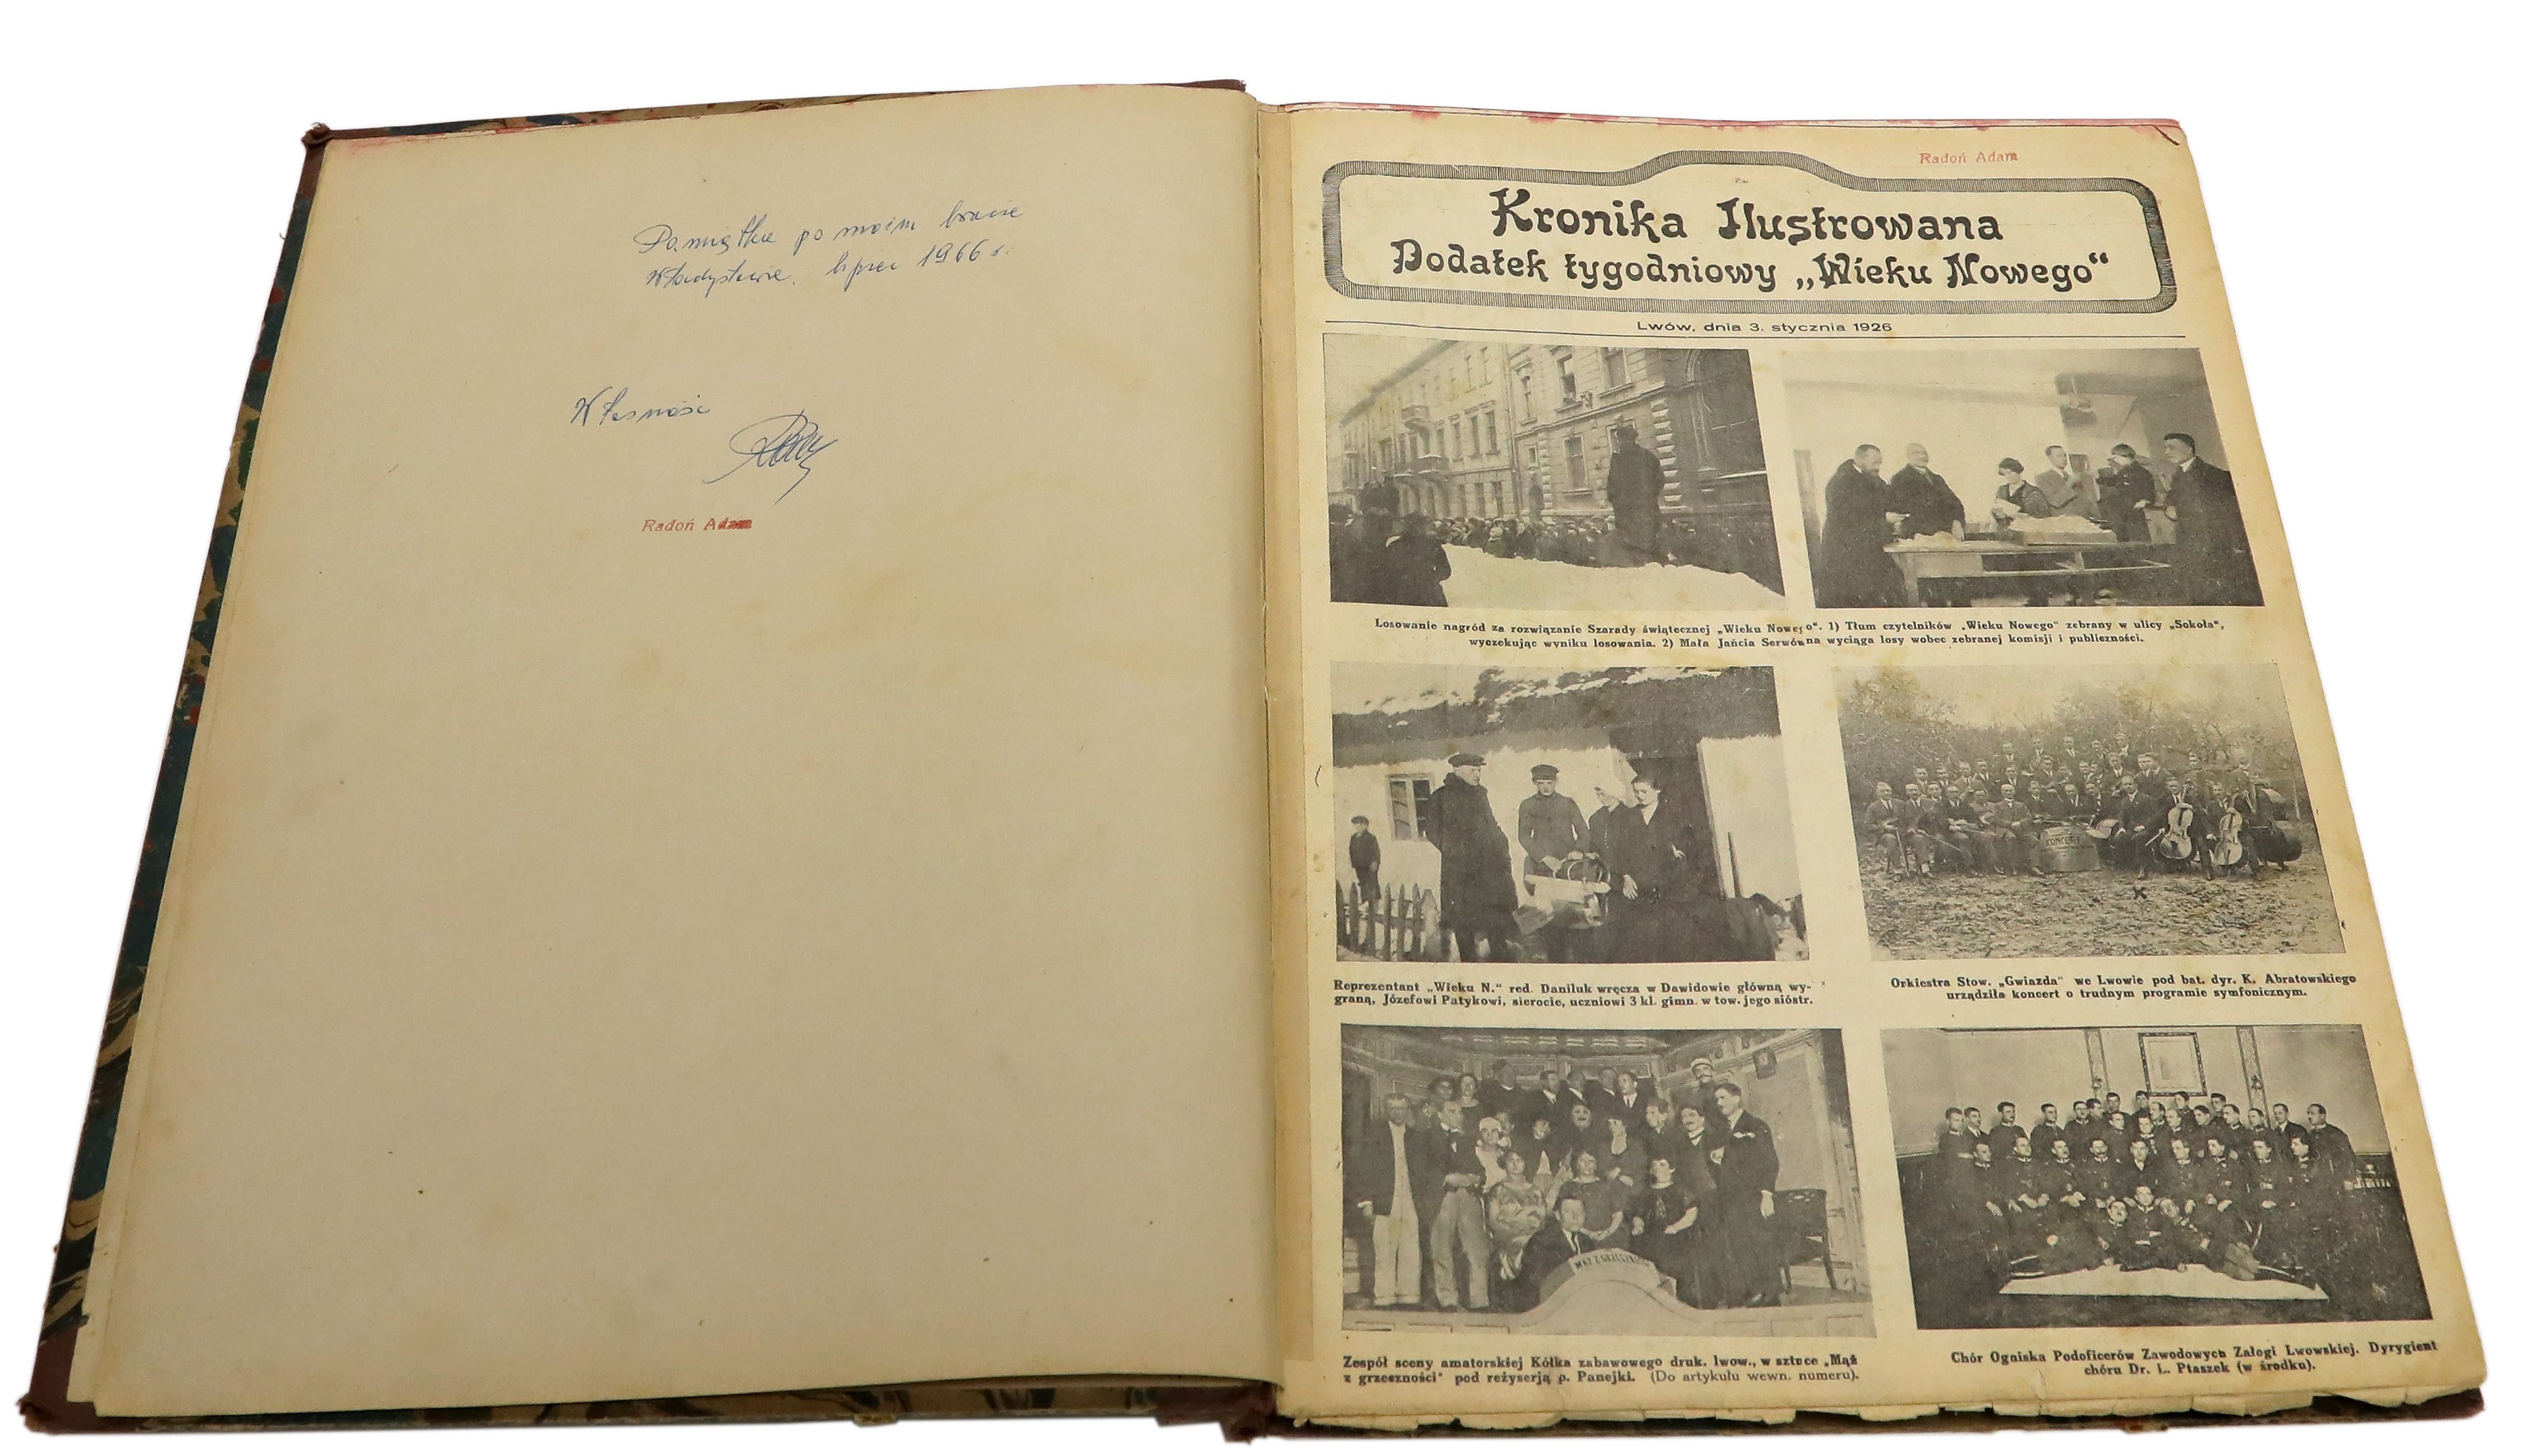 Pamiątka po moim bracie
Władysławie. lipiec 1966 r.
Własność
Radoń Adam
Radoń Adam
Kronika Ilustrowana
Dodatek tygodniowy „Wieku Nowego“
Lwów, dnia 3. stycznia 1926
Losowanie nagród za rozwiązanie Szarady świątecznej „Wieku Nowego“. 1) Tłum czytelników „Wieku Nowego“ zebrany w ulicy „Sokoła“,
wyczekując wyniku losowania. 2) Mała Jańcia Serwówna wyciąga losy wobec zebranej komisji i publiczności.
Reprezentant „Wieku N.“ red. Daniluk wręcza w Dawidowie główną wy-
graną, Józefowi Patykowi, sierocie, uczniowi 3 kl. gimn. w tow. jego sióstr.
KONCERT
Orkiestra Stow. „Gwiazda“ we Lwowie pod bat. dyr. K. Abratowskiego
urządziła koncert o trudnym programie symfonicznym.
MĄŻ Z GRZECZNOŚCI
Zespół sceny amatorskiej Kółka zabawowego druk. lwow., w sztuce „Mąż
z grzeczności“ pod reżyserją p. Panejki. (Do artykułu wewn. numeru).
Chór Ogniska Podoficerów Zawodowych Załogi Lwowskiej. Dyrygient
chóru Dr. L. Ptaszek (w środku).